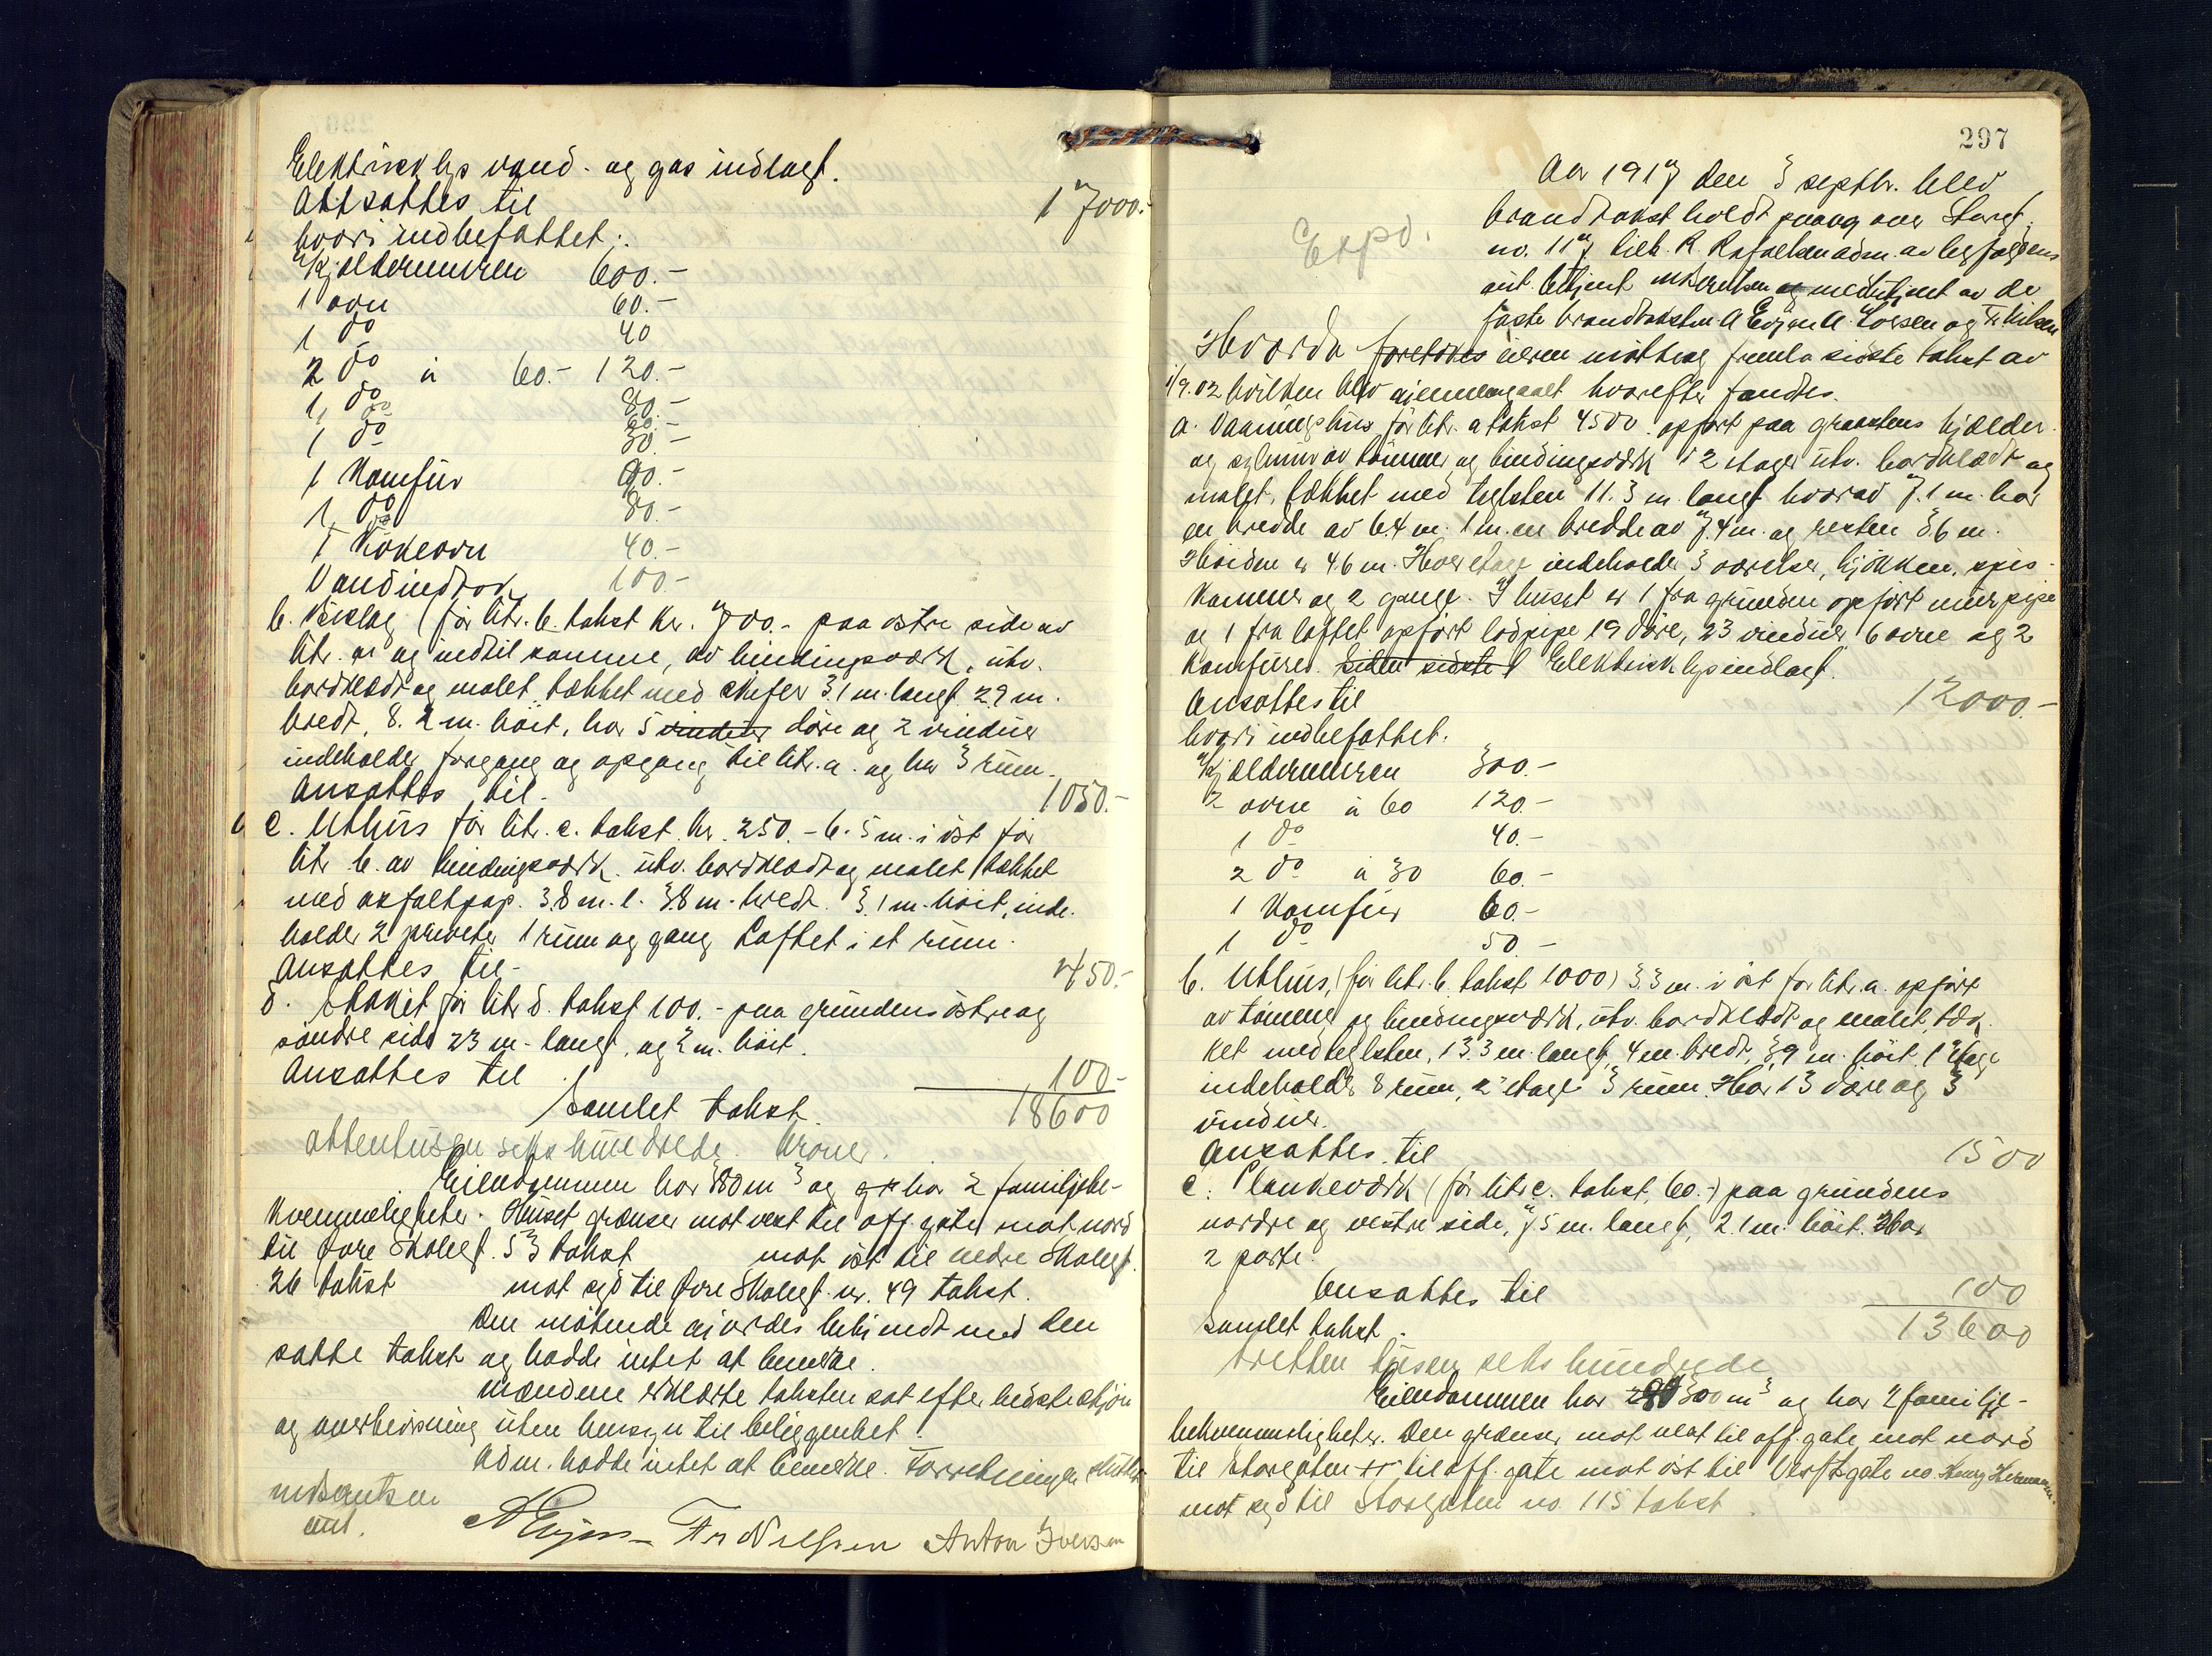 Elektrisk lys vand- og gas indlagt.
Attsattes til 17000.-
hvori indbefattet:
Kjeldermuren 600.-
1 ovn 60.-
1 do 40
2 do à 60.- 120.-
1 do 80.-
1 do 30.-
1 Komfür 90.-
1 do 80.-
1 Kokeovn 40.-
Vandindtak 100.-
b. Bislag (för litr. b. takst kr. 700.- paa östre side av
litr. a og indtil samme, av bindingsværk, utv.
bordklædt og malet tækket med skifer 3.1 m. langt 2.9 m.
bredt, 8.2 m. höit, har 5 vinduer döre og 2 vinduer
indeholder forgang og opgang til litr. a. og har 3 rum.
Ansattes til. 1050.-
c. Uthus för litr. c. takst kr. 250.- 6.5 m. i öst for
litr b. av bindingsværk. utv. bordklædt og malet tækket
med asfaltpap. 3.8 m. l. 3.8 m. bredt. 3.1 m. höit, inde-
holder 2 priveter 1 rum og gang Loftet i et rum.
Ansattes til- 450.-
d. Stakit för litr d. takst 100.- paa grundens östre og
söndre side 23 m. langt, og 2 m. höit.
Ansattes til 100-
Samlet takst. 18600
attentusen seks hundrede kroner.
Eiendommen har 380 m3 og gr har 2 familjebe-
kvemmeligheter. Huset grenser mot vest til off. gate mot nord
til övre Skoleg. 53 takst mot öst til nedre Skoleg.
26 takst mot syd til övre Skoleg. nr. 49 takst.
Den mötende gjordes bekjendt med den
satte takst og hadde intet at bemerke.
Mændene erklærte taksten sat efter bedste skjön
og overbevisning uten hensyn til beliggenhet.
Adm. hadde intet at bemerke. Forretningen sluttet
ass.
A Evjen Fr Nilssen Anton Iversen
297
Aar 1917 den 3 septbr. blev
Expd.
brandtakst holdt paany over Storgt.
no. 117 tilh. R. Rafaelsen adm. av
ast. betjent og medbetjent av de
faste brandtakstm A Evjen A. Iversen og Fr Nilsen
Hvorda foretokes eieren mötte og fremla sidste takst av
1/9.02 hvilken blev gjennemgaaet hvorefter fandtes.
a. Vaaningshus för litr. a takst 4500. opfört paa graastens kjelder
og sylmur av tömmer og bindingsværk i 2 etager utv. bordklædt og
malet, tækket med teglsten 11.3 m. langt hvorav 7.1 m. har
en bredde av 6.4 m. 1 m. en bredde av 7.4 m. og resten 3.6 m.
Höiden er 4.6 m. Hver etage indeholder 3 værelser, kjökken, spis-
kammer og 2 gange. I huset er 1 fra grunden opfört murpipe
og 1 fra loftet opfört lodpipe 19 döre, 23 vinduer 6 ovne og 2
komfürer. Siden sidste t Elektrisk lys indlagt.
Ansattes til 12000.-
hvori indbefattet.
Kjeldermuren 300.-
2 ovne à 60 120.-
1 do 40.-
2 do à 30 60.-
1 Komfür 60.-
1 do 50.-
b. Uthus, (för litr. b. takst 1000) 3.3 m. i öst for litr. a. opfört
av tömmer og bindingsværk, utv. bordklædt og malet, tæk-
ket med teglsten, 13.3 m. langt, 4 m. bredt, 3.9 m. höit. 1 Etage
indeholder 8 rum, 2 etage 3 rum. Har 13 döre og 3
vinduer.
Ansattes til 1500
c. Plankeværk (för litr c. takst, 60.-) paa grundens
nordre og vestre side, 7.5 m. langt, 2.1 m. höit. Har
2 porte.
Ansattes til 100
Samlet takst. 13600
tretten tusen seks hundrede
Eiendommen har 300 m3 og har 2 familje-
bekvemmeligheter. Den grænser mot vest til off. gate mot nord
til Storgaten til off. gate mot öst til Verftsgate no.
mot syd til Storgaten no. 115 takst.